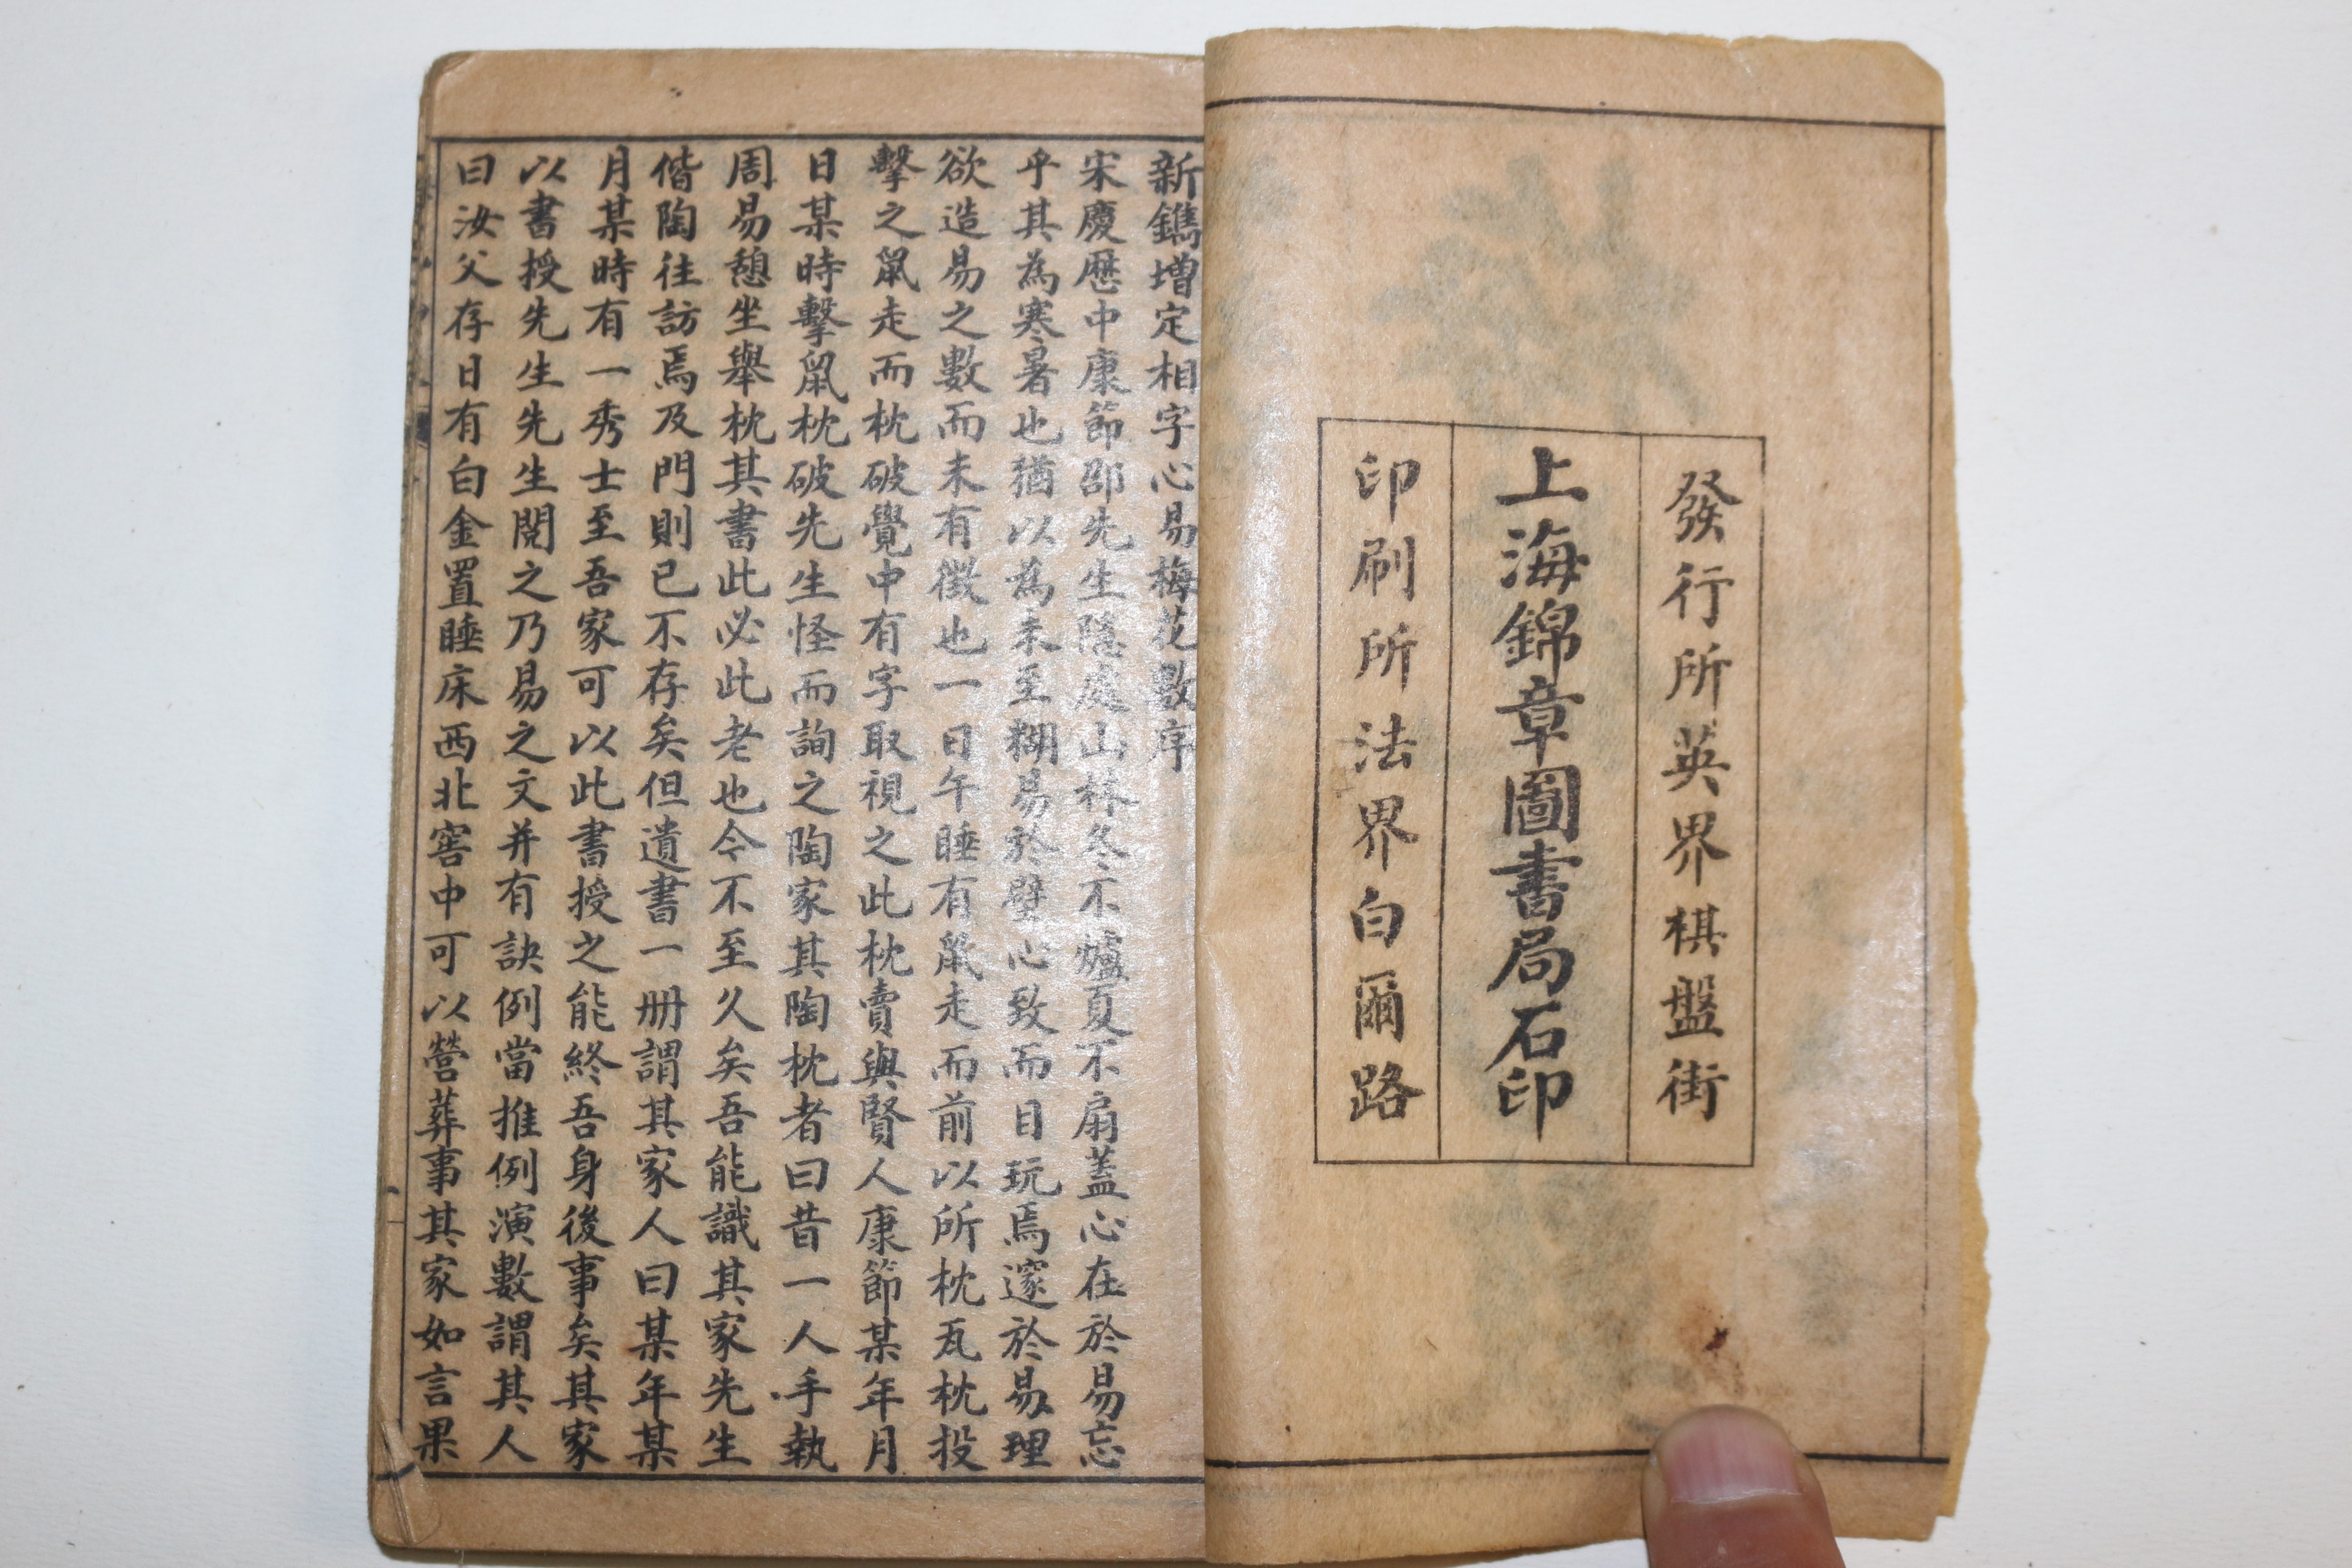 發行所英界棋盤街
上海錦章圖書局石印
印刷所法界白爾路
新鐫增定相字心易梅花數序
宋慶曆中康節邵先生隱處山林冬不爐夏不扇蓋心在於易忘
乎其為寒暑也猶以為未至糊易於壁心致而目玩焉邃於易理
欲造易之數而未有徵也一日午睡有鼠走而前以所枕瓦枕投
擊之鼠走而枕破覺中有字取視之此枕賣與賢人康節某年月
日某時擊鼠枕破先生怪而詢之陶家其陶枕者曰昔一人手執
周易憩坐舉枕其書此必此老也今不至久矣吾能識其家先生
偕陶往訪焉及門則已不存矣但遺書一册謂其家人曰某年某
月某時有一秀士至吾家可以此書授之能終吾身後事矣其家
以書授先生先生閱之乃易之文并有訣例當推例演數謂其人
曰汝父存日有白金置睡床西北窖中可以營葬事其家如言果